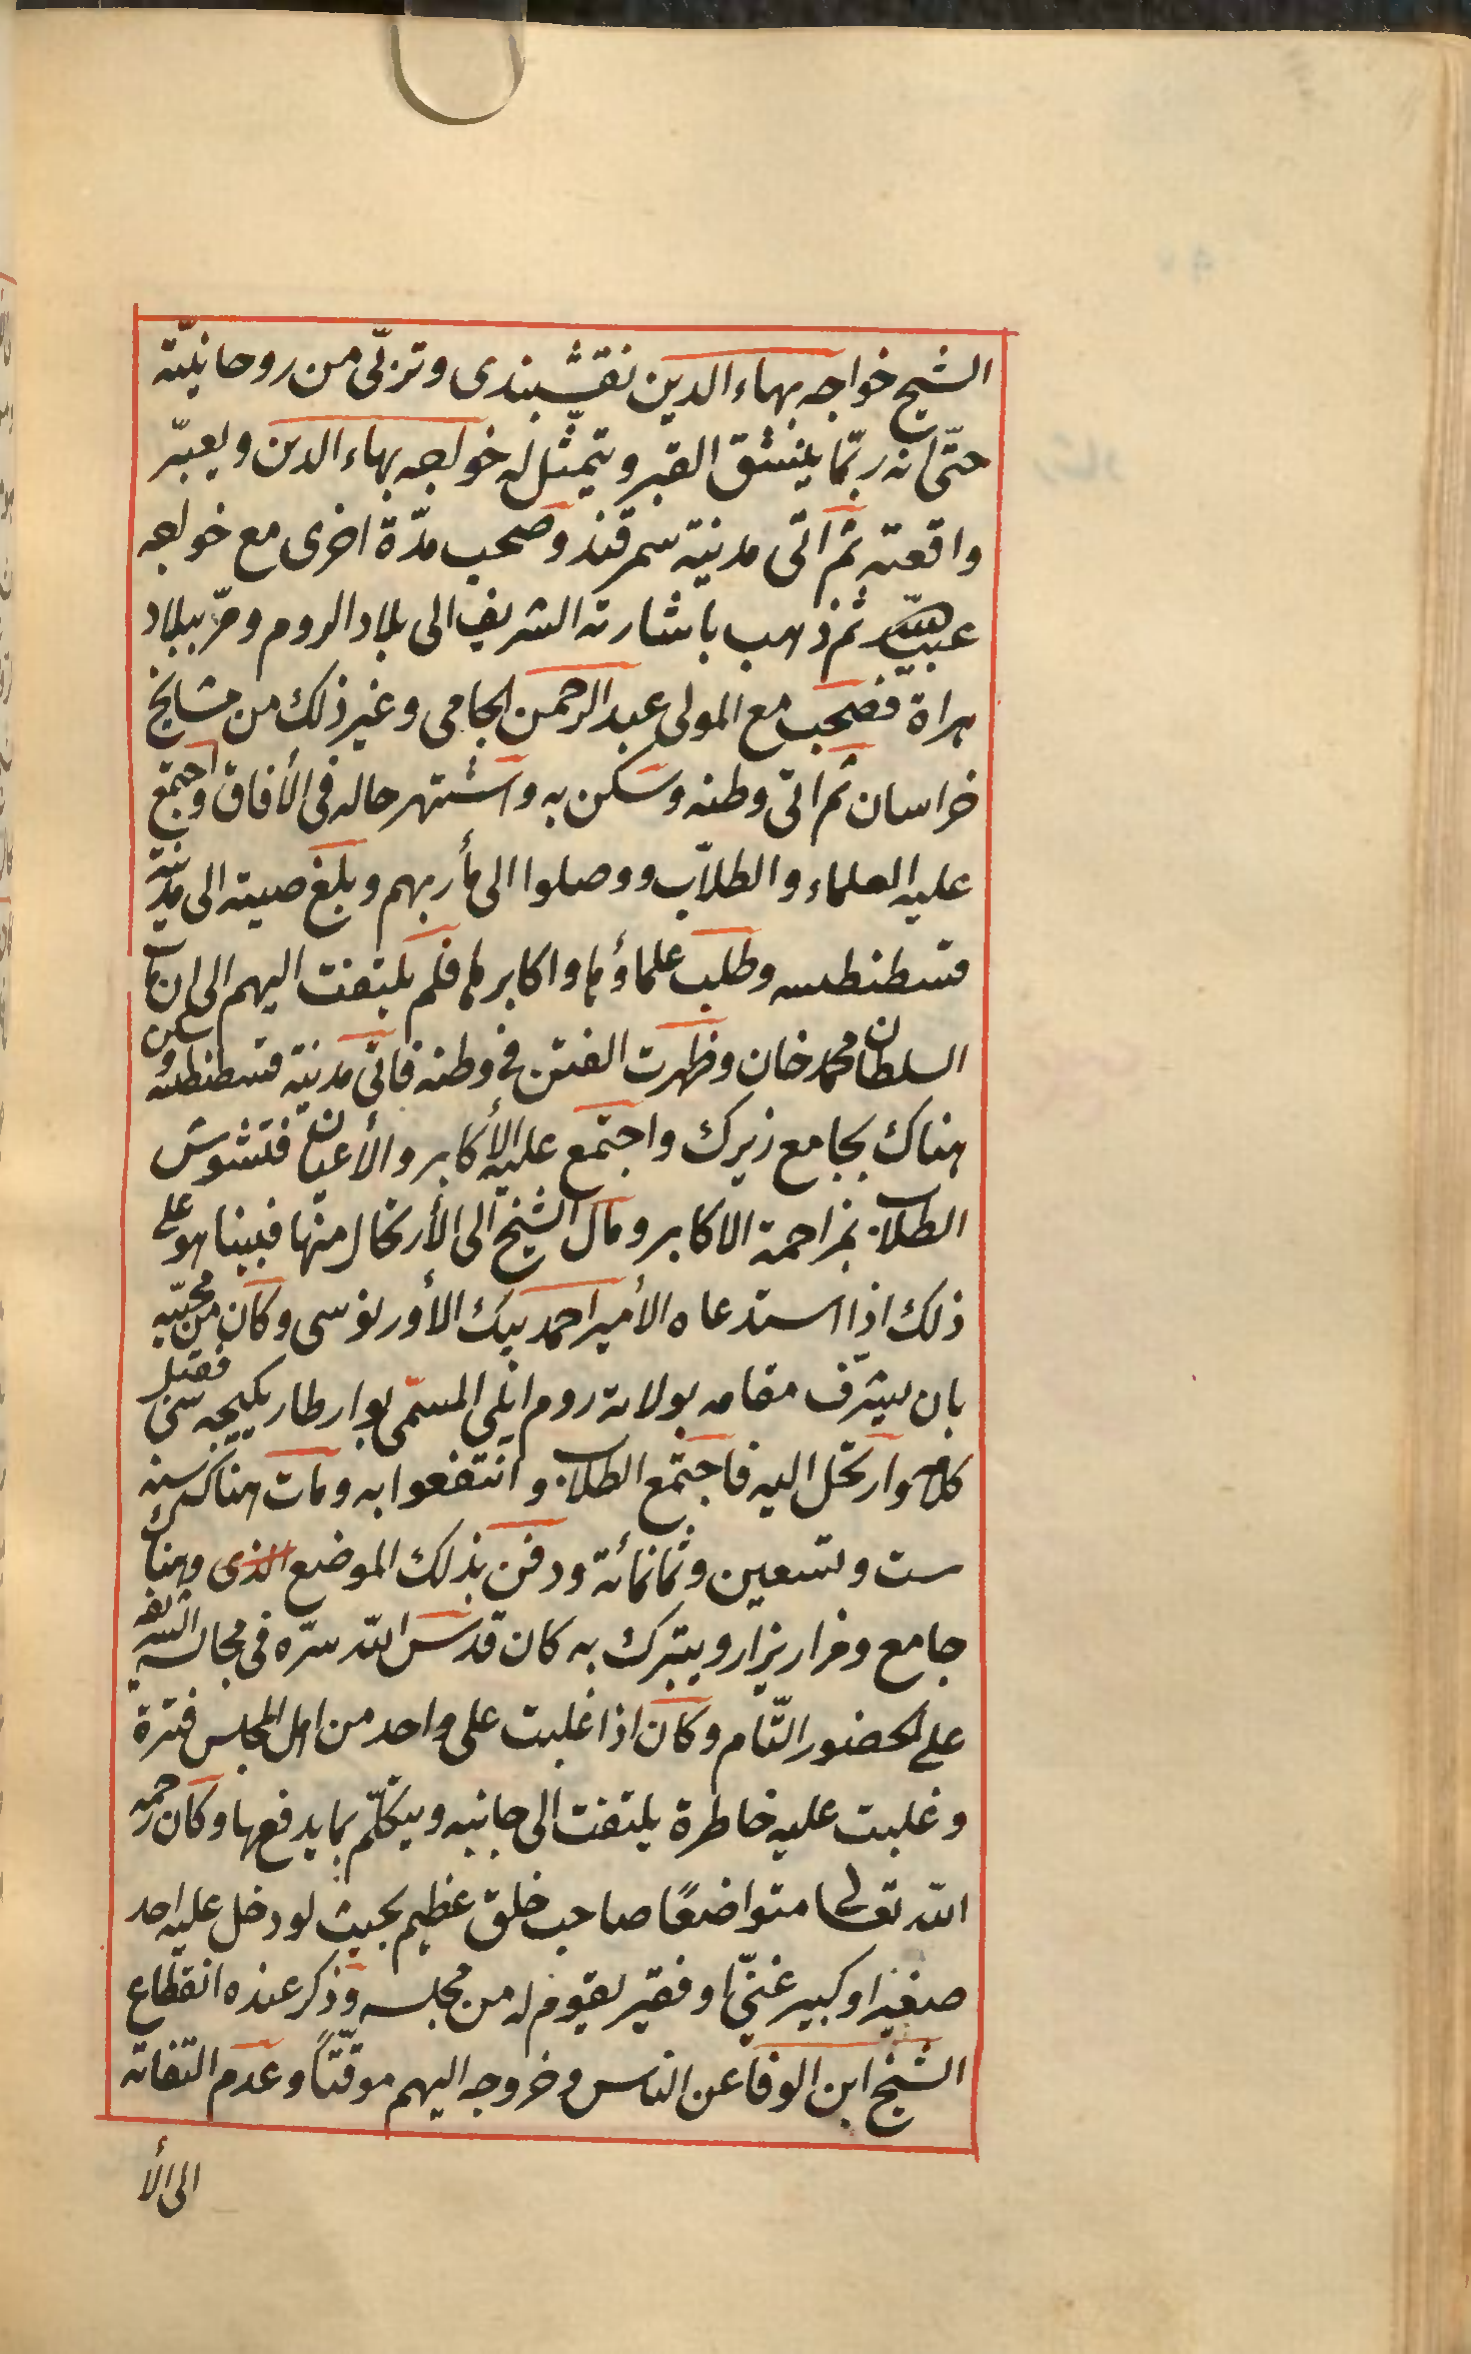 الشيخ خواجه بهاء الدين نقشبندى وتربّى من روحانيّته
حتّى انه ربّما ينشق القبر ويتمثّل له خواجه بهاء الدين ويعبّر
واقعته ثم اتى مدينة سمرقند وصحب مدّة اخرى مع خواجه
عبيد الله ثم ذهب باشارته الشريف الى بلاد الروم ومرّ ببلاد
هراة فصحب مع المولى عبد الرحمن الجامى وغير ذلك من مشايخ
خراسان ثم اتى وطنه وسكن به واشتهر حاله فى الأفاق واجتمع
عليه العلماء والطلاّب ووصلوا الى مأربهم وبلغ صيته الى مدينة
قسطنطنيه وطلب علماؤها واكابرها فلم يلتفت اليهم الى ان مات
السلطان محمد خان وظهرت الفتن فى وطنه فاتى مدينة قسطنطنيه وسكن
هناك بجامع زيرك واجتمع عليه الأكابر والأعيان فتشوش
الطلاب بمزاحمة الاكابر ومال الشيخ الى الأرتحال منها فبينا هو على
ذلك اذا استدعاه الأمير احمد بيك الأورنوسى وكان من محبّيه
بان يشرّف مقامه بولاية روم ايلى المسمّى بوارطار يكيجه سى فقبل
كلامه وارتحل اليه فاجتمع الطلاب وانتفعوا به ومات هناك سنه
ست وتسعين وثمانمائة ودفن بذلك الموضع الذى وهناك
جامع ومزار يزار ويتبرك به كان قدس الله سرّه فى مجالسه الشريفه
على الحضور التّام وكان اذا غلبت على واحد من اهل المجلس فترة
وغلبت عليه خاطرة يلتفت الى جانبه ويتكلّم بما يدفعها وكان رحمه
الله تعالى متواضعًا صاحب خلق عظيم بحيث لو دخل عليه احد
صغيرا وكبير غنيّا وفقير يقوم له من مجلسه وذكر عنده انقطاع
الشيخ ابن الوفا عن الناس وخروجه اليهم موقّتًا وعدم التفاته
الى الأ